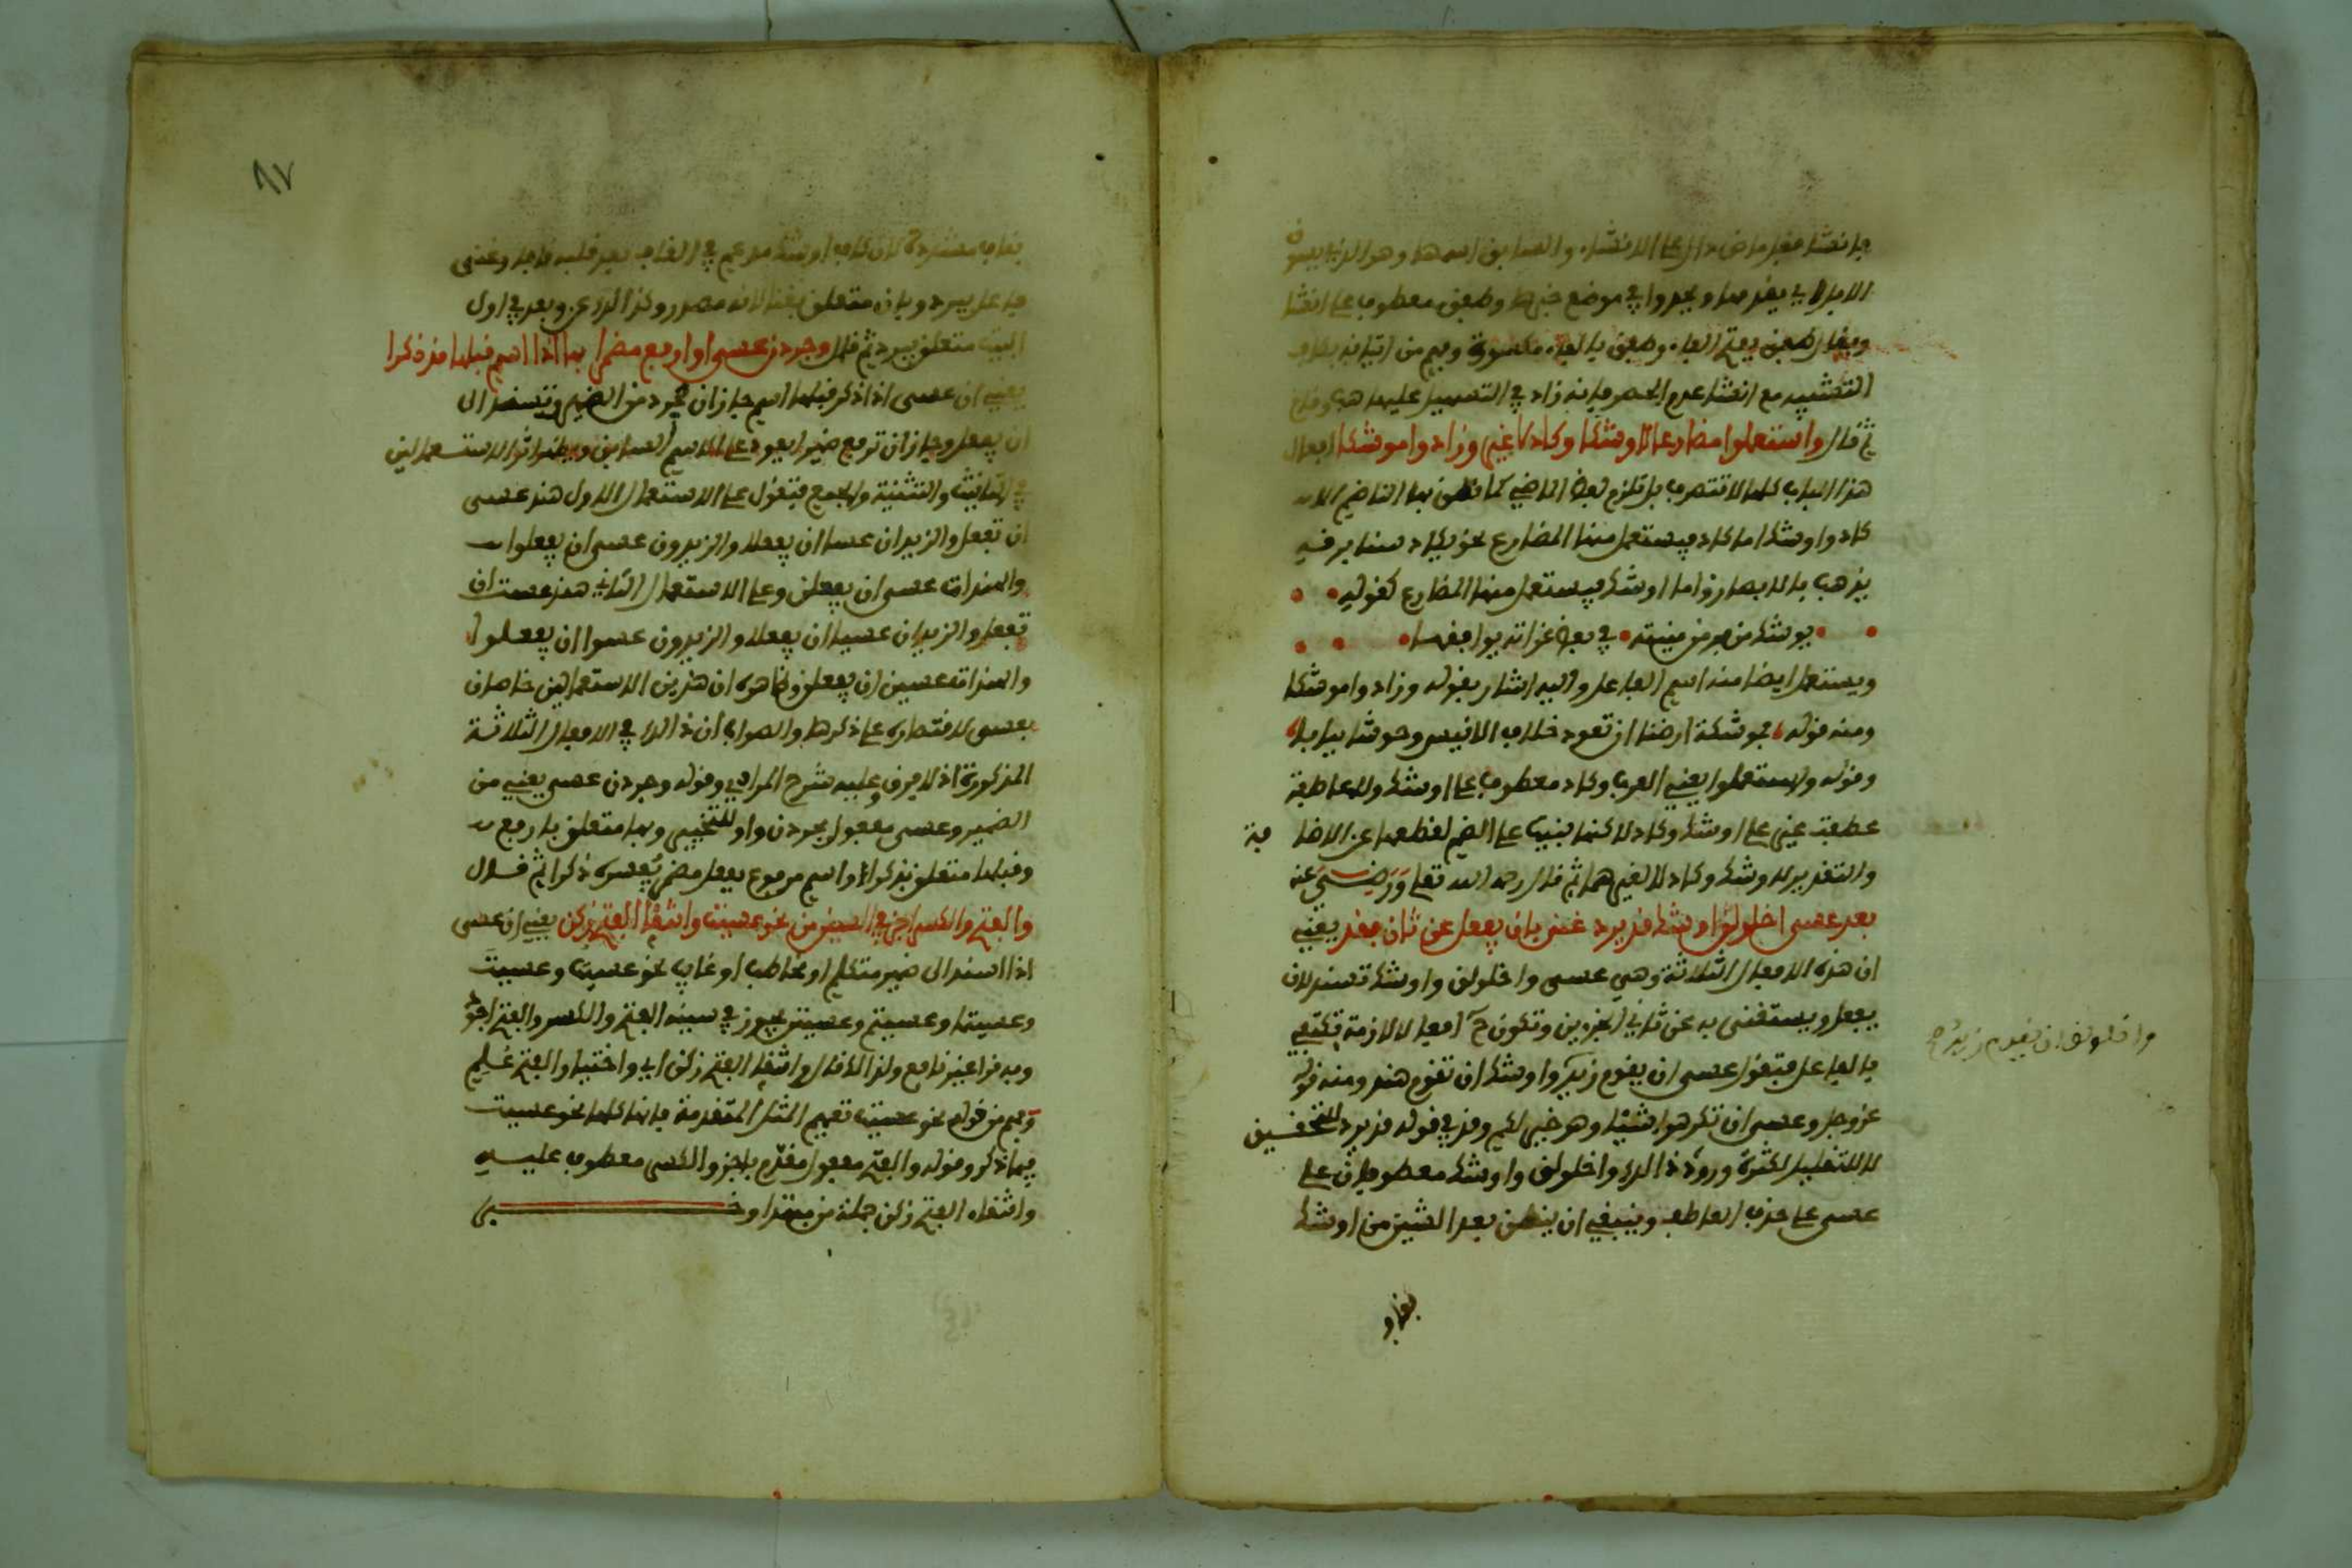 فانشا فعل ماض دال على الانشاء والسابق اسمها وهو الذي يسوق
الابل اي يقدمها ويحدوا في موضع خبرها وطفق معطوف على انشا
ويقال طفق بفتح الفاء وطفق بالفاء مكسورة وفهم من اتيانه بكاف
التشبيه مع انشا عدم الحصر فانه زاد في التسهيل عليها هب وقام
ثم قال واستعملوا مضارعا لاوشكا وكاد لا غير وزادوا موشكا افعال
هذا الباب كلها لا تتصرف بل تلزم لفظ الماضي كما نطق بها الناظم الا
كاد واوشك اما كاد فيستعمل منها المضارع نحو يكاد سنا برقه
يذهب بالابصار واما اوشك فيستعمل منها المضارع كقوله
يوشك من فر من منيته في بعض غراته يوافقها
ويستعمل ايضا منه اسم الفاعل واليه اشار بقوله وزادوا موشكا
ومنه قوله فموشكة ارضنا ان تعود خلاف الانيس وحوشا يبابا
وقوله واستعملوا يعني العرب وكاد معطوف على اوشك ولا عاطفة
عطفت غير على اوشك وكاد لاكنها بنيت على الضم لقطعها عن الاضا فة
والتقدير لاوشك وكاد لا لغيرهما ثم قال رحمه الله تعلى ورضي عنه
بعد عسى اخلولق اوشك قد يرد غنى بان يفعل عن ثان فقد يعني
ان هذه الافعال الثلاثة وهي عسى واخلولق واوشك تسند لان
يفعل ويستغنى به عن ثاني الجزءين وتكون ح افعالا لازمة تكتفي
بالفاعل فتقول عسى ان يقوم زيد واوشك ان تقوم هند ومنه قوله
واخلولق ان يقوم زيد صح
عز وجل وعسى ان تكرهوا شيئا وهو خير لكم وقد في قوله قد يرد للتحقيق
لا للتقليل لكثرة ورود ذالك واخلولق واوشك معطوفان على
عسى على حذف العاطف وينبغي ان ينطق بعد الشين من اوشك
بقاف
٨٧
بقاف مشددة لان كاف اوشك مدغم في القاف بعد قلبه قافا وغنى
فاعل بيرد وبان متعلق بغنا لانه مصدر وكذالك عن وبعد في اول
البيت متعلق بيرد ثم قال وجردن عسى او ارفع مضمرا بها اذا اسم قبلها قد ذكرا
يعني ان عسى اذا ذكر قبلها اسم جاز ان تجرد من الضمير وتسند الى
ان يفعل وجاز ان ترفع ضميرا يعود على الاسم السابق ويظهر اثر الاستعمالين
في التانيث والتثنية والجمع فتقول على الاستعمال الاول هند عسى
ان تفعل والزيدان عسى ان يفعلا والزيدون عسى ان يفعلوا
والهندات عسى ان يفعلن وعلى الاستعمال الثاني هند عست ان
تفعل والزيدان عسيا ان يفعلا والزيدون عسوا ان يفعلوا
والهندات عسين ان يفعلن وظاهره ان هذين الاستعمالين خاصان
بعسى لاقتصاره على ذكرها والصواب ان ذالك في الافعال الثلاثة
المذكورة اذ لا فرق وعليه شرح المرادي وقوله وجردن عسى يعني من
الضمير وعسى مفعول بجردن واو للتخيير وبها متعلق بارفع
وقبلها متعلق بذكرا واسم مرفوع بفعل مضمر يفسره ذكرا ثم قال
والفتح والكسر اجز في السين من نحو عسيت وانتقا الفتح زكن يعني ان عسى
اذا اسند الى ضمير متكلم او مخاطب او غايب نحو عسيت وعسيت
وعسيتما وعسيتم وعسيتن يجوز في سينه الفتح والكسر والفتح اجود
وبه قرا غير نافع ولذالك قال وانتقا الفتح زكن اي واختيار الفتح علم
وفهم من قوله نحو عسيت تعميم المثل المتقدمة فانها كلها نحو عسيت
فيما ذكر وقوله والفتح مفعول مقدم باجز والكسر معطوف عليه
وانتقاء الفتح زكن جملة من مبتدا وخبر